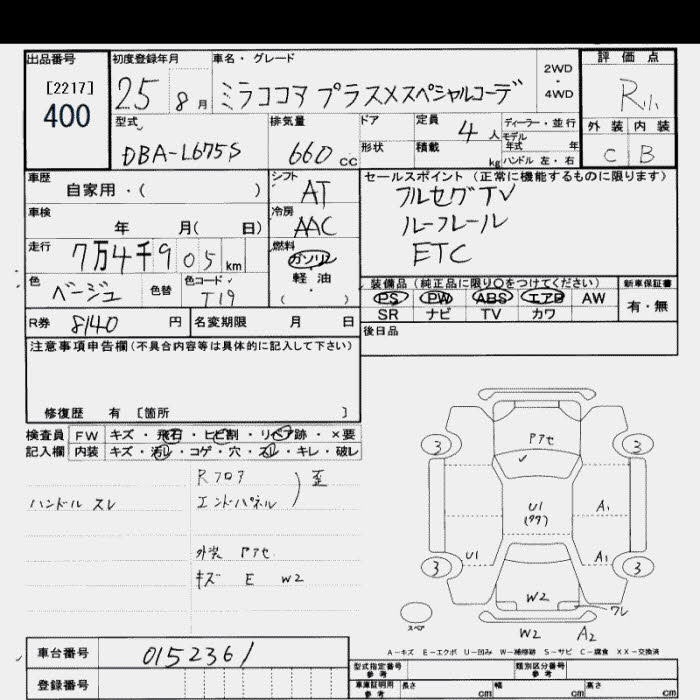 出品番号
[2217]
400
初度登録年月
25 8月
車名・グレード
ミラココア プラスXスペシャルコーデ
2WD
・
4WD
評価点
R
外装 内装
C B
型式
DBA-L675S
排気量
660 cc
ドア
形状
定員
4人
積載
kg
ディーラー・並行
モデル
年式 年
ハンドル 左・右
車歴
自家用・( )
シフト
AT
車検
年 月( 日)
冷房
AAC
走行
7万4千905km
燃料
ガソリン
・
軽・油
( )
色
ベージュ
色替
色コード
T19
セールスポイント(正常に機能するものに限ります)
フルセグTV
ルーフレール
ETC
装備品(純正品に限り○をつけてください)
新車保証書
PS PW ABS エアB AW
SR ナビ TV カワ
有・無
R券 8140円
名変期限 月 日
後日品
注意事項申告欄(不具合内容等は具体的に記入して下さい)
修復歴 有 [箇所 ]
検査員
記入欄
FW キズ・飛石・ヒビ割・リペア跡・×要
内装 キズ・汚れ・コゲ・穴・スレ・キレ・破レ
Rフロア
エンドパネル
歪
ハンドル スレ
外装 Pアセ
キズ E W2
Pアセ
3 3
U1
A1
U1
A1
3 3
W2
ワレ
スペア
W2 A2
A-キズ E-エクボ U-凹み W-補修跡 S-サビ C-腐食 XX-交換済
車台番号
0152361
登録番号
型式指定番号
参考
類別区分番号
参考
車庫証明用
参考
長さ cm
幅 cm
高さ cm